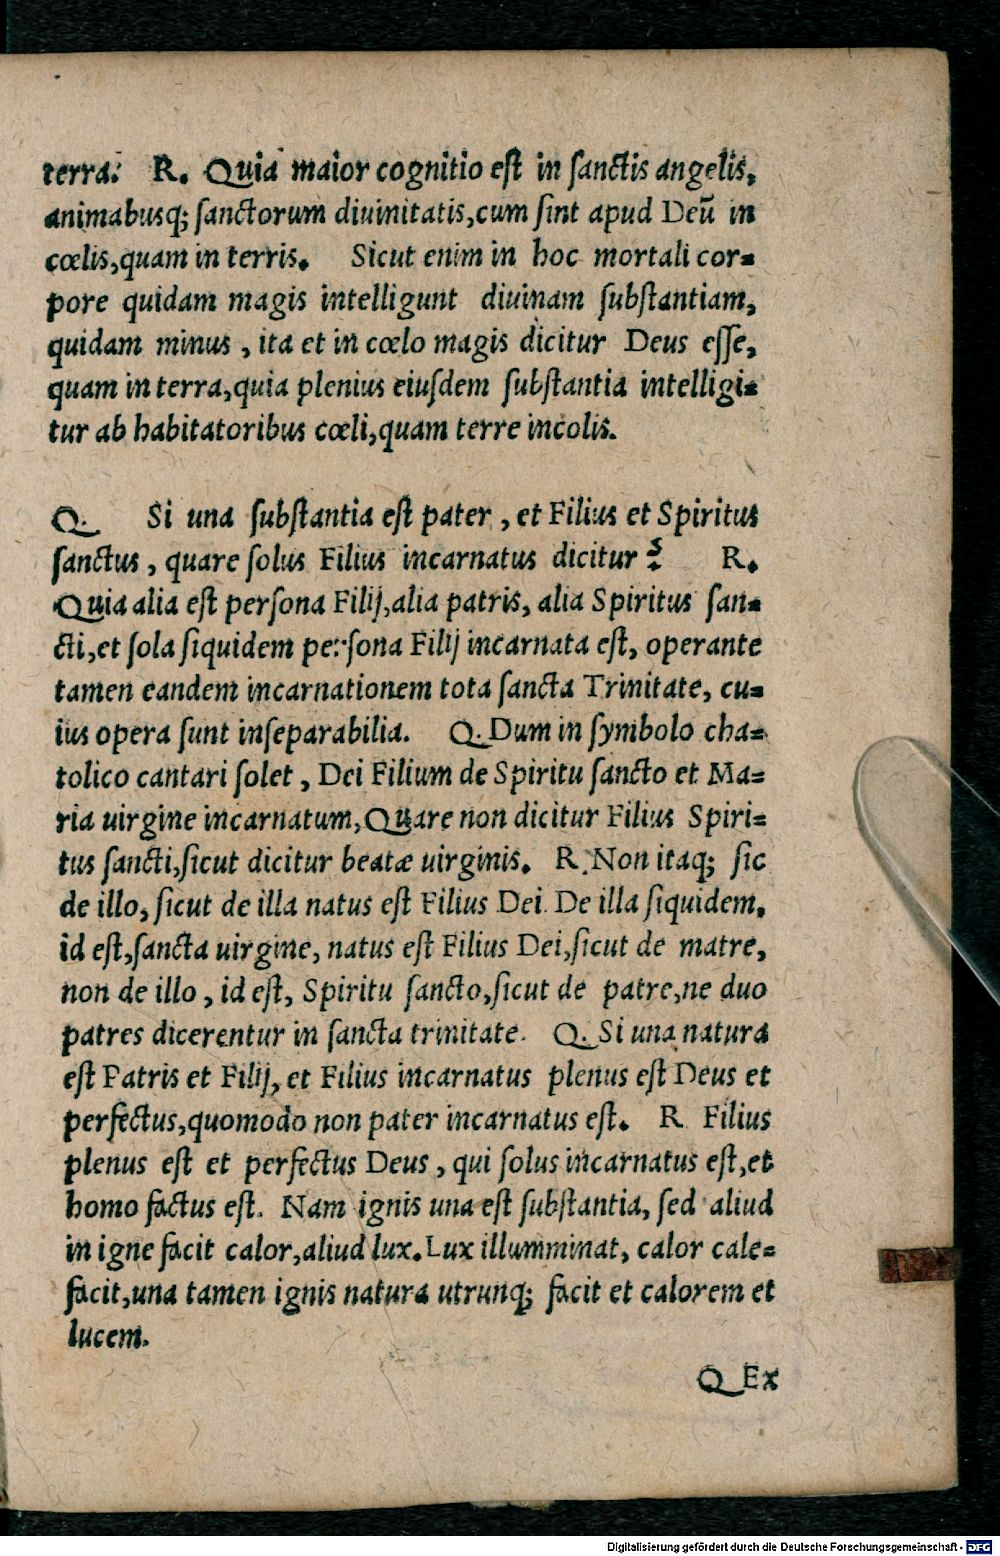 terra: R. Quia maior cognitio est in sanctis angelis,
animabusq; sanctorum diuinitatis, cum sint apud Deū in
cœlis, quam in terris. Sicut enim in hoc mortali cor-
pore quidam magis intelligunt diuinam substantiam,
quidam minus, ita et in cœlo magis dicitur Deus esse,
quam in terra, quia plenius eiusdem substantia intelligi-
tur ab habitatoribus cœli, quam terre incolis.
Q. Si una substantia est pater, et Filius et Spiritus
sanctus, quare solus Filius incarnatus dicitur? R.
Quia alia est persona Filij, alia patris, alia Spiritus san-
cti, et sola siquidem persona Filij incarnata est, operante
tamen eandem incarnationem tota sancta Trinitate, cu-
ius opera sunt inseparabilia. Q. Dum in symbolo cha-
tolico cantari solet, Dei Filium de Spiritu sancto et Ma-
ria uirgine incarnatum, Quare non dicitur Filius Spiri-
tus sancti, sicut dicitur beatæ uirginis. R. Non itaq; sic
de illo, sicut de illa natus est Filius Dei. De illa siquidem,
id est, sancta uirgine, natus est Filius Dei, sicut de matre,
non de illo, id est, Spiritu sancto, sicut de patre, ne duo
patres dicerentur in sancta trinitate. Q. Si una natura
est Patris et Filij, et Filius incarnatus plenus est Deus et
perfectus, quomodo non pater incarnatus est. R Filius
plenus est et perfectus Deus, qui solus incarnatus est, et
homo factus est. Nam ignis una est substantia, sed aliud
in igne facit calor, aliud lux. Lux illumminat, calor cale-
facit, una tamen ignis natura utrunq; facit et calorem et
lucem.
Q Ex
Digitalisierung gefördert durch die Deutsche Forschungsgemeinschaft - DFG